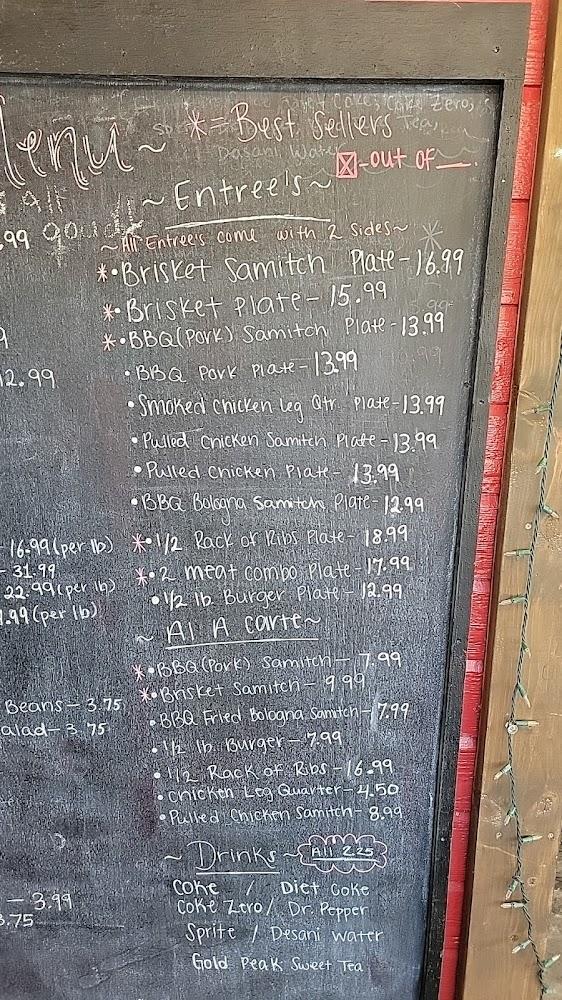 Menu ~ * = Best Sellers
☒ - out of __.
~ Entree's ~
~ All Entree's come with 2 sides ~
.99 gouda
* • Brisket Samitch Plate - 16.99
* • Brisket Plate - 15.99
* • BBQ (Pork) Samitch Plate - 13.99
• BBQ Pork Plate - 13.99
12.99
• Smoked Chicken Leg Qtr. Plate - 13.99
• Pulled Chicken Samitch Plate - 13.99
• Pulled Chicken Plate - 13.99
• BBQ Bologna Samitch Plate - 12.99
* • 1/2 Rack of Ribs Plate - 18.99
- 16.99 (per lb)
* • 2 meat combo Plate - 17.99
- 31.99
• 1/2 lb Burger Plate - 12.99
22.99 (per lb)
.99 (per lb)
~ Al A carte ~
* • BBQ (Pork) Samitch - 7.99
* • Brisket Samitch - 9.99
Beans - 3.75
• BBQ Fried Bologna Samitch - 7.99
alad - 3.75
• 1/2 lb. Burger - 7.99
• 1/2 Rack of Ribs - 16.99
• Chicken Leg Quarter - 4.50
• Pulled Chicken Samitch - 8.99
~ Drinks ~ All 2.25
Coke / Diet Coke
- 3.99
Coke Zero / Dr. Pepper
3.75
Sprite / Desani water
Gold Peak Sweet Tea